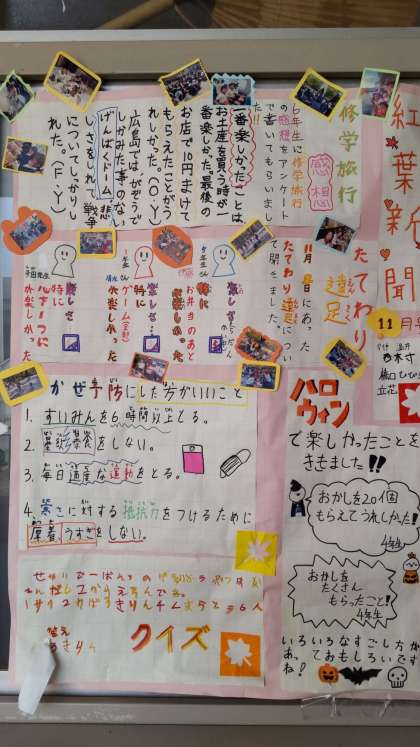 紅葉新聞
11月号
修学旅行
感想
6年生に修学旅行
の感想をアンケート
で書いてもらいまし
た!!
一番楽しかったことは
お土産を買う時が一
番楽しかった。最後の
お店で10円まけて
もらえたことがう
れしかった。(O・Y)
広島では、がぞうで
しかみた事のない
げんばくドーム。悲
しさをしれ、戦争
についてしっかりし
れた。(F・Y)
たてわり
遠足
11月 日にあった
たてわり遠足につい
て聞きました。
楽しさ…
特に
お弁当のあと
が楽しかった
楽しさ…
特に
ゲーム(全部)
が楽しかった
楽しさ…
特に
が楽しかった
かぜ予防にした方がいいこと
1. すいみんを6時間以上とる。
2. 暴飲暴食をしない。
3. 毎日適度な運動をとる。
4. 寒さに対する抵抗力をつけるために
厚着、うすぎをしない。
ハロウィン
で楽しかったことを
ききました!!
おかしを20個
もらえてうれしかった!
4年生
おかしを
たくさん
もらったこと!
4年生
いろいろなすごし方が
あっておもしろいです
ね!
クイズ
答え
きりん